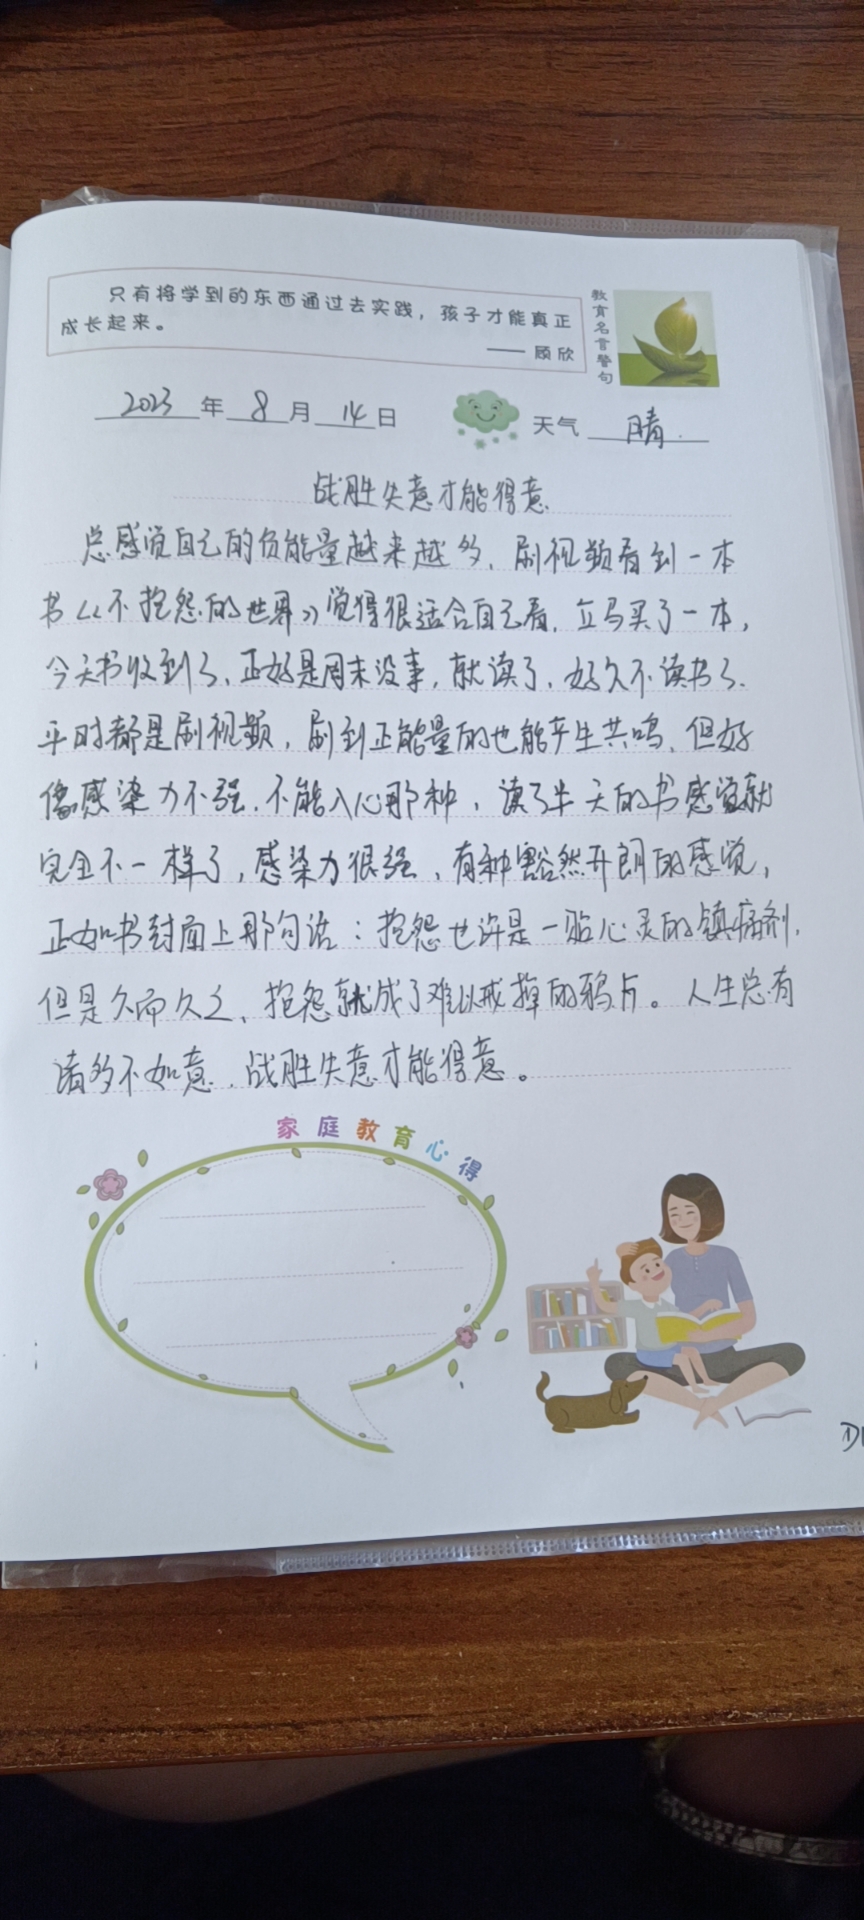 只有将学到的东西通过去实践，孩子才能真正
成长起来。
—— 顾欣
教育名言警句
2023年8月14日
天气 晴.
战胜失意才能得意
总感觉自己的负能量越来越多，刷视频看到一本
书《不抱怨的世界》觉得很适合自己看，立马买了一本，
今天书收到了、正好是周末没事，就读了，好久不读书了、
平时都是刷视频，刷到正能量的也能产生共鸣，但好
像感染力不强，不能入心那种，读了半天的书感觉就
完全不一样了，感染力很强，有种豁然开朗的感觉，
正如书封面上那句话：抱怨也许是一贴心灵的镇痛剂，
但是久而久之、抱怨就成了难以戒掉的鸦片。人生总有
诸多不如意，战胜失意才能得意。
家庭教育心得